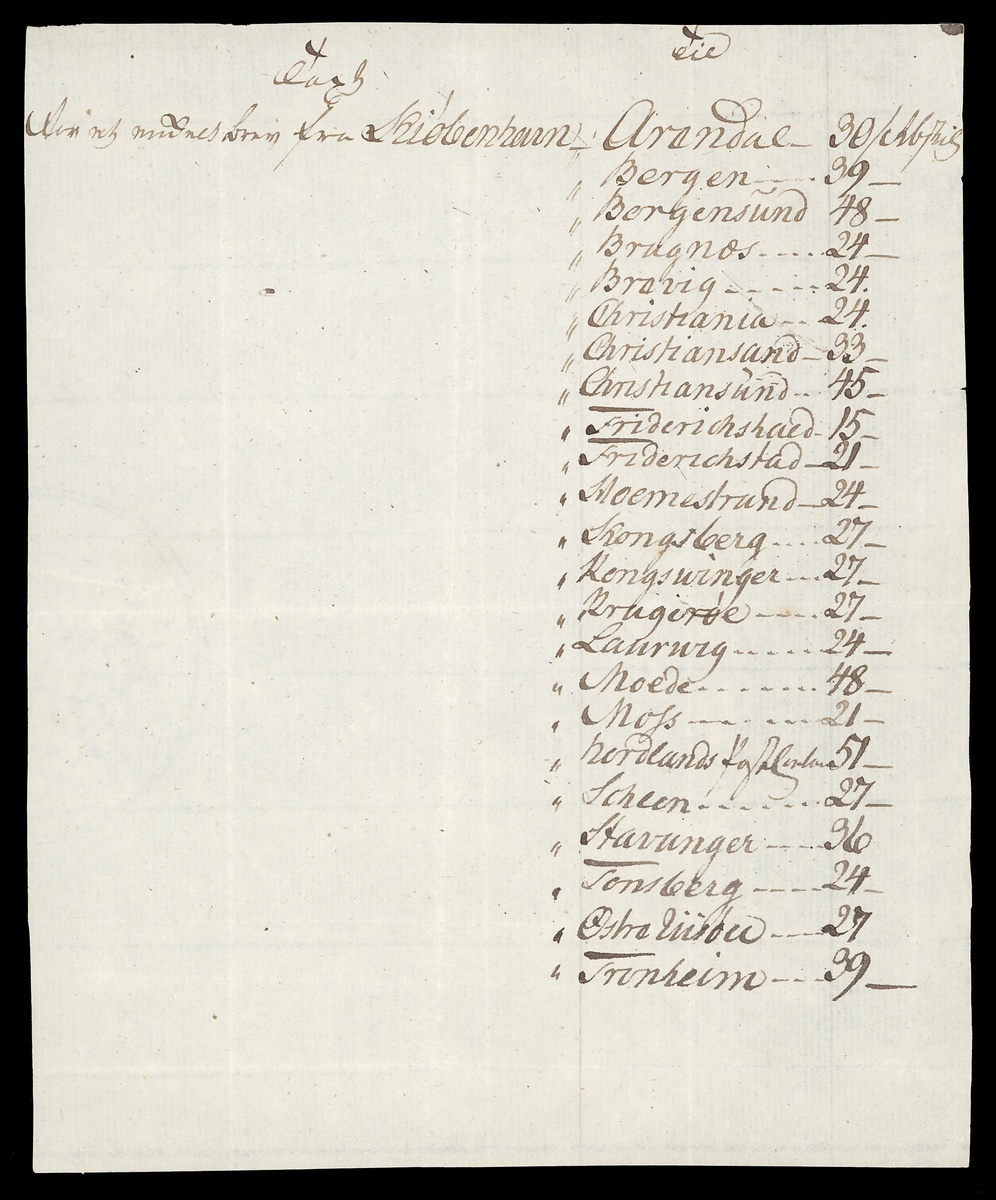 Til
Taxt
For et enckelt brev fra Kiøbenhavn " Arendal 30
" Bergen ---- 39 -
" Borgensund 48 -
" Bragnæs ---- 24 -
" Brevig ---- 24.
" Christiania --- 24.
" Christiansand - 33 -
" Christiansund -- 45 -
" Friderichshald - 15 -
" Friderichstad - 21 -
" Holmestrand - 24 -
" Kongsberg ---- 27 -
" Kongswinger --- 27 -
" Kragerøe ---- 27 -
" Laurwig ----- 24 -
" Molde ------- 48 -
" Moss ------ 21 -
" Nordlands 51 -
" Scheen ------- 27 -
" Stavanger ---- 36
" Tonsberg ---- 24 -
" Østra Riisøer --- 27
" Tronheim --- 39 -